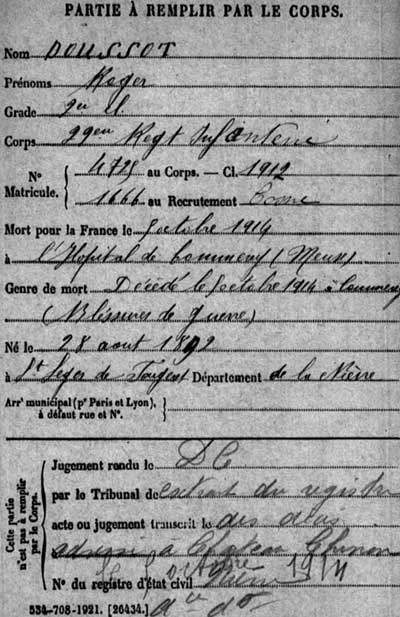 PARTIE À REMPLIR PAR LE CORPS.
Nom DOUSSOT
Prénoms Roger
Grade
Corps Regt Infanterie
Nº Matricule. { 4725 au Corps. — Cl. 1912
1666 au Recrutement Cosne
Mort pour la France le 5 octobre 1914
à l'Hopital de Commercy (Meuse)
Genre de mort Décédé le 5 octobre 1914 à Commercy
(Blessures de guerre)
Né le 28 aout 1892
à St Leger de Fougeret Département de la Nièvre
Arr' municipal (pr Paris et Lyon), à défaut rue et Nº. }
Cette partie n'est pas à remplir par le Corps. { Jugement rendu le DC
par le Tribunal de extrait du registre
acte ou jugement transcrit le des
à Château Chinon
Nº du registre d'état civil
534-708-1921. [26434.]